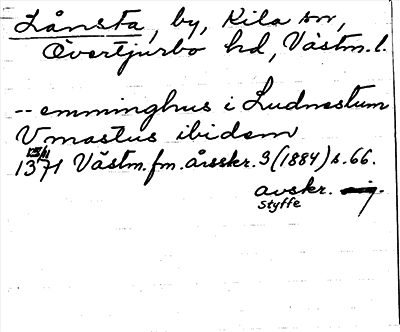 Lånsta, by, Kila sn,
Övertjurbo hd, Västm. l.
-- emminghus i Ludnestum
Vmastus ibidem
13/11
1371 Västm. fm. årsskr. 3 (1884) s. 66.
avskr.
Styffe